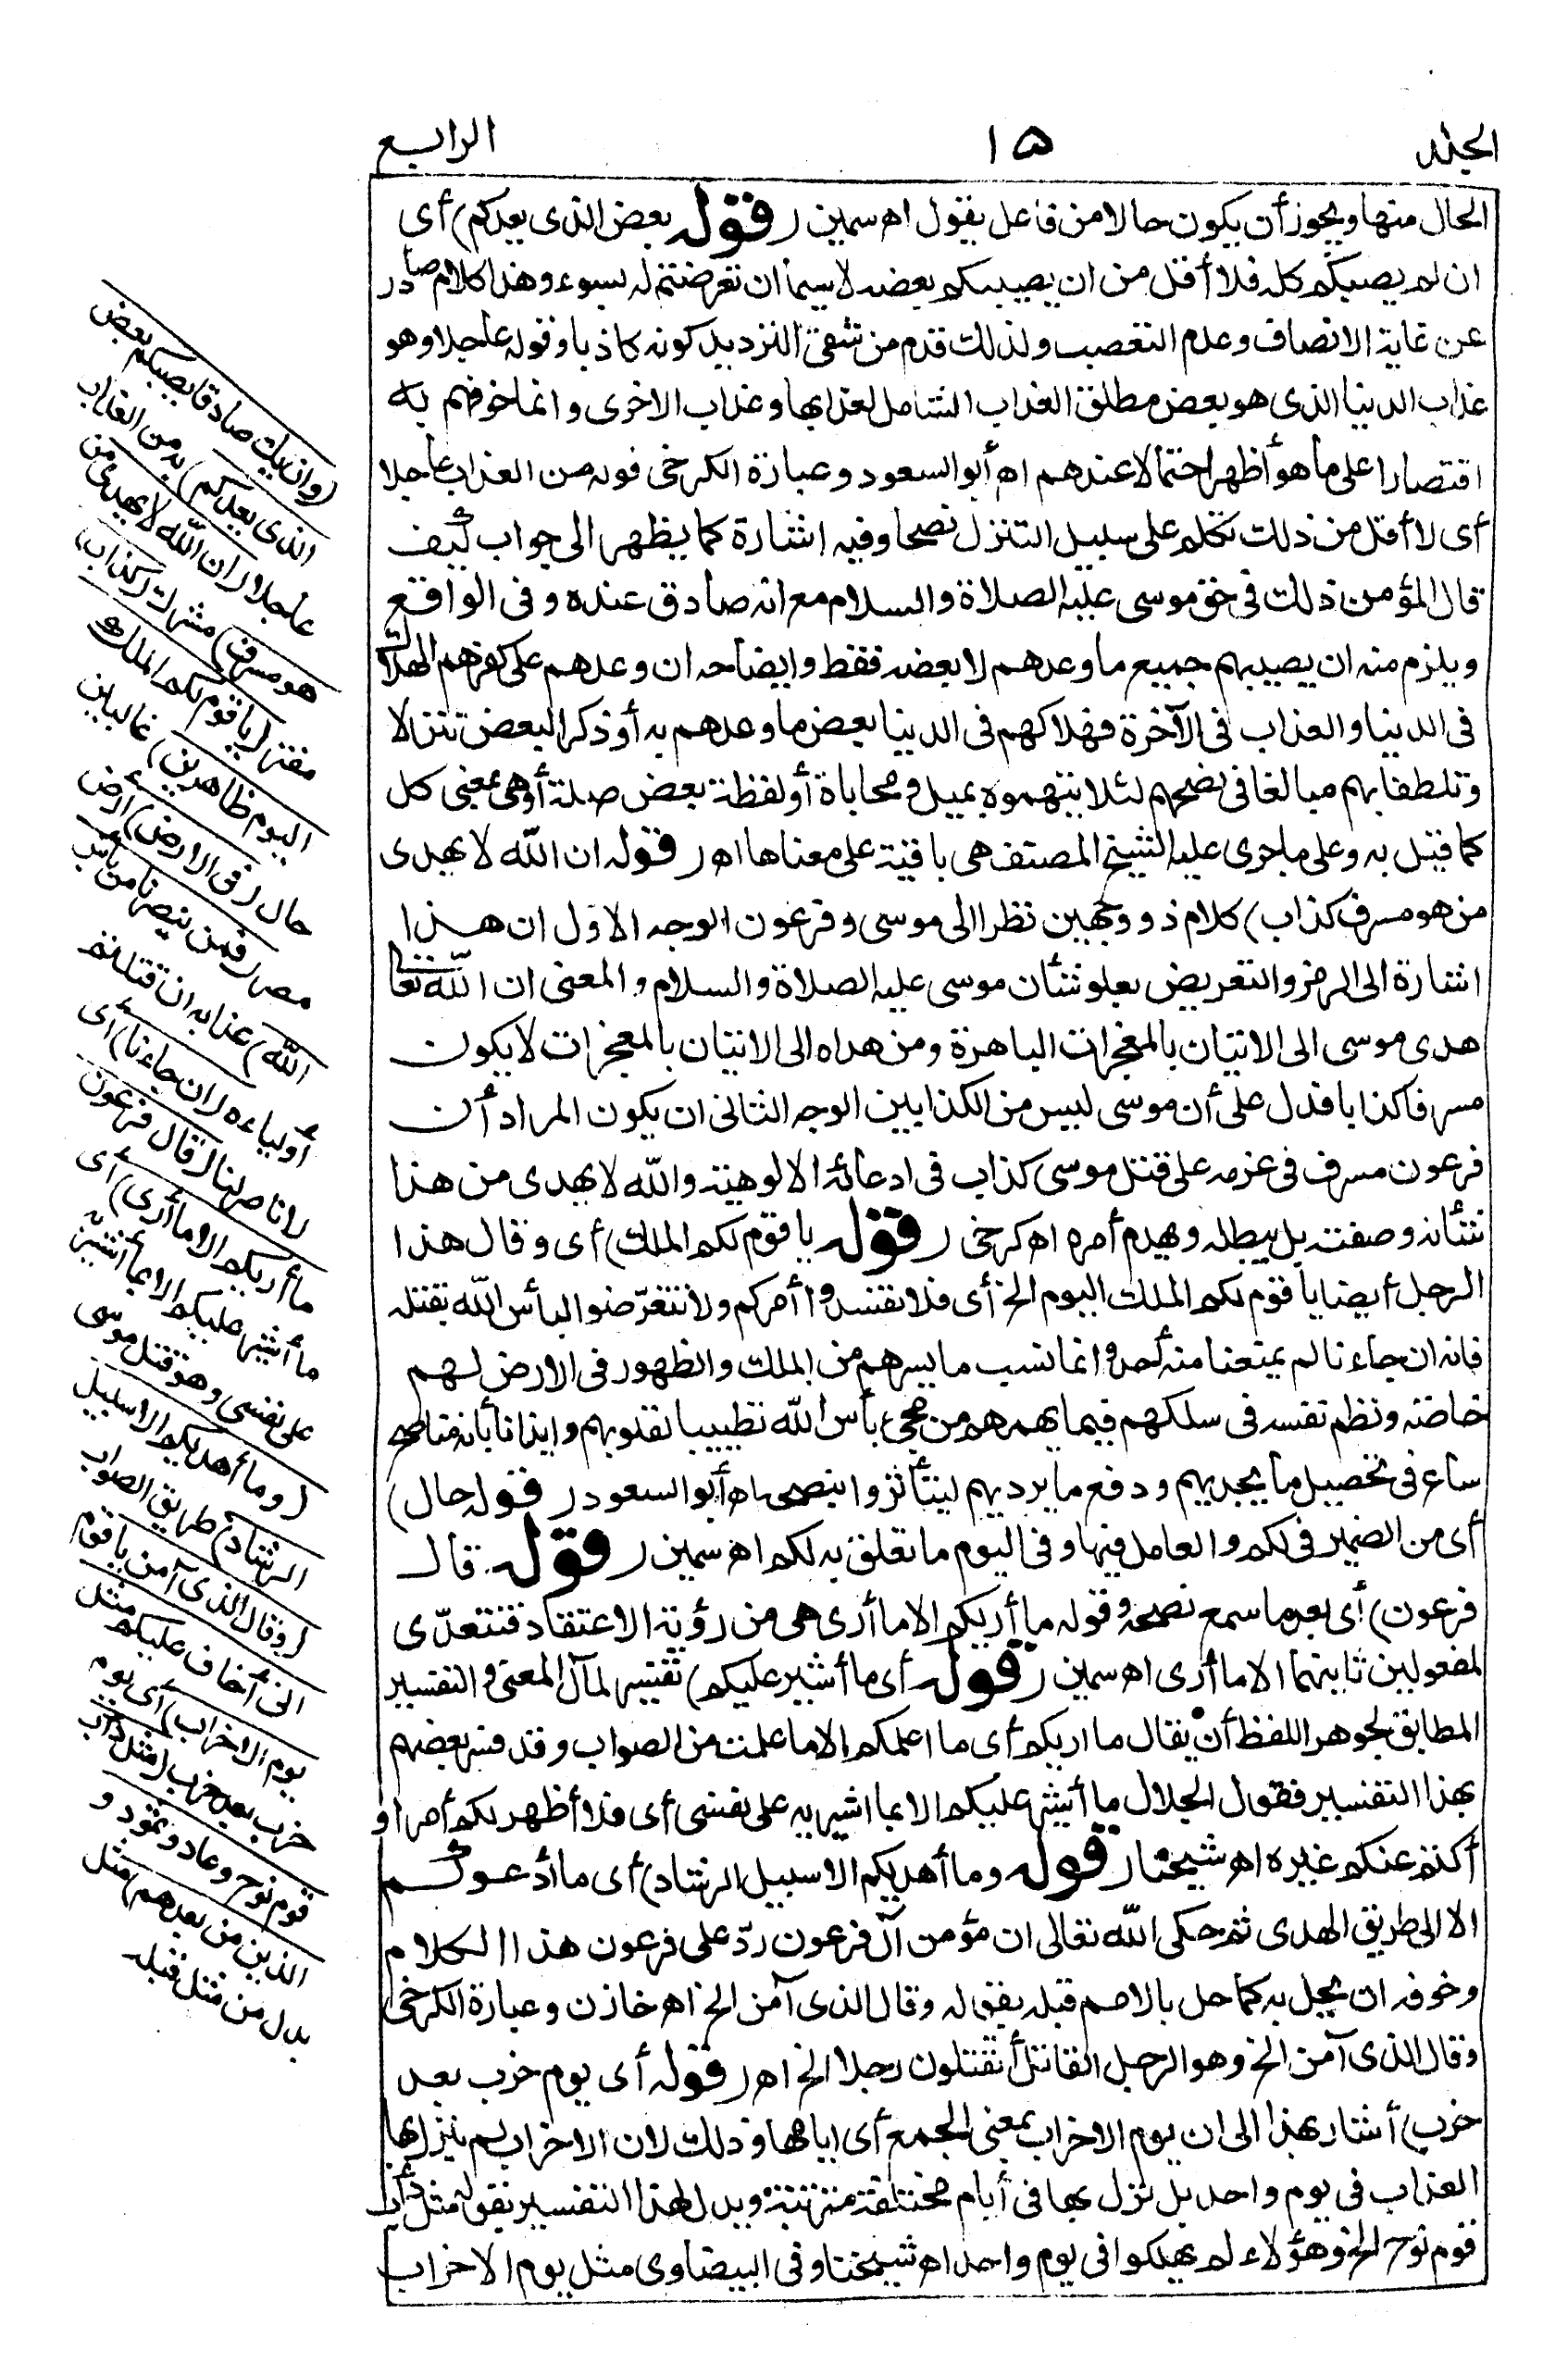 الجلد
١٥
الرابع
الحال منها ويجوز أن يكون حالا من فاعل يقول اه سمين (قوله بعض الذى يعدكم) أى
ان لم يصبكم كله فلا أقل من ان يصيبكم بعضه لا سيما ان تعرضتم له بسوء وهذا كلام صادر
عن غاية الانصاف وعدم التعصب ولذلك قدم من شقى الترديد كونه كاذبا وقوله عاجلا وهو
عذاب الدنيا الذى هو بعض مطلق العذاب الشامل لعذابها وعذاب الاخرى وانما خوفهم به
اقتصارا على ما هو أظهر احتمالا عندهم اه أبو السعود وعبارة الكرخى قوله من العذاب عاجلا
أى لا أقل من ذلك تكلم على سبيل التنزل نصحا وفيه اشارة كما يظهر الى جواب كيف
قال المؤمن ذلك فى حق موسى عليه الصلاة والسلام مع انه صادق عنده وفى الواقع
ويلزم منه ان يصيبهم جميع ما وعدهم لا بعضه فقط وايضاحه ان وعدهم على كفرهم الهلاك
فى الدنيا والعذاب فى الآخرة فهلاكهم فى الدنيا بعض ما وعدهم به أو ذكر البعض تنزلا
وتلطفا بهم مبالغا فى نصحهم لئلا يتهموه بميل ومحاباة أو لفظة بعض صلة أو هى بمعنى كل
كما قيل به وعلى ما جرى عليه الشيخ المصنف هى باقية على معناها اه (قوله ان الله لا يهدى
من هو مسرف كذاب) كلام ذو وجهين نظرا الى موسى وفرعون الوجه الاول ان هذا
اشارة الى الرمز والتعريض بعلو شأن موسى عليه الصلاة والسلام والمعنى ان الله تعالى
هدى موسى الى الاتيان بالمعجزات الباهرة ومن هداه الى الاتيان بالمعجزات لا يكون
مسرفا كذابا فدل على أن موسى ليس من الكذابين الوجه الثانى ان يكون المراد أن
فرعون مسرف فى عزمه على قتل موسى كذاب فى ادعائه الالوهية والله لا يهدى من هذا
شأنه وصفته بل يبطله ويهدم أمره اه كرخى (قوله يا قوم لكم الملك) أى وقال هذا
الرجل أيضا يا قوم لكم الملك اليوم الخ أى فلا تفسدوا أمركم ولا تتعرّضوا لبأس الله بقتله
فانه ان جاءنا لم يمنعنا منه أحد وانما نسب ما يسرهم من الملك والظهور فى الارض لهم
خاصة ونظم نفسه فى سلكهم فيما يهمهم من مجىء بأس الله تطييبا لقلوبهم وايذانا بأنه مناصح
ساع فى تحصيل ما يجديهم ودفع ما يرديهم ليتأثروا بنصحه اه أبو السعود (قوله حال)
أى من الضمير فى لكم والعامل فيها وفى اليوم ما تعلق به لكم اه سمين (قوله قال
فرعون) أى بعد ما سمع نصحه وقوله ما أريكم الا ما أرى هى من رؤية الاعتقاد فتتعدّى
لمفعولين ثانيهما الا ما أرى اه سمين (قوله أى ما أشير عليكم) تفسير لمآل المعنى والتفسير
المطابق لجوهر اللفظ أن يقال ما اريكم أى ما اعلمكم الا ما علمت من الصواب وقد فسر بعضهم
بهذا التفسير فقول الجلال ما أشير عليكم الا بما اشير به على نفسى أى فلا أظهر لكم أمرا و
أكتم عنكم غيره اه شيخنا (قوله وما أهديكم الا سبيل الرشاد) أى ما أدعوكم
الا الى طريق الهدى ثم حكى الله تعالى ان مؤمن آل فرعون ردّ على فرعون هذا الكلام
وخوفه ان يحل به كما حل بالامم قبله بقوله وقال الذى آمن الخ اه خازن وعبارة الكرخى
وقال الذى آمن الخ وهو الرجل القائل أتقتلون رجلا الخ اه (قوله أى يوم حزب بعد
حزب) أشار بهذا الى ان يوم الاحزاب بمعنى الجمع أى ايامها وذلك لان الاحزاب لم ينزل بها
العذاب فى يوم واحد بل نزل بها فى أيام مختلفة مترتبة ويدل لهذا التفسير بقوله مثل دأب
قوم نوح الخ وهؤلاء لم يهلكوا فى يوم واحد اه شيخنا وفى البيضاوى مثل يوم الاحزاب
(وان يك صادقا يصبكم بعض
الذى يعدكم) به من العذاب
عاجلا (ان الله لا يهدى من
هو مسرف) مشرك (كذاب)
مفتر (يا قوم لكم الملك
اليوم ظاهرين) غالبين
حال (فى الارض) أرض
مصر (فمن ينصرنا من بأس
الله) عذابه ان قتلتم
أولياءه (ان جاءنا) أى
لا ناصر لنا (قال فرعون
ما أريكم الا ما أرى) أى
ما أشير عليكم الا بما أشير به
على نفسى وهو قتل موسى
(وما أهديكم الا سبيل
الرشاد) طريق الصواب
(وقال الذى آمن يا قوم
انى أخاف عليكم مثل
يوم الاحزاب) أى يوم
حزب بعد حزب (مثل دأب
قوم نوح وعاد وثمود و
الذين من بعدهم) مثل
بدل من مثل قبله